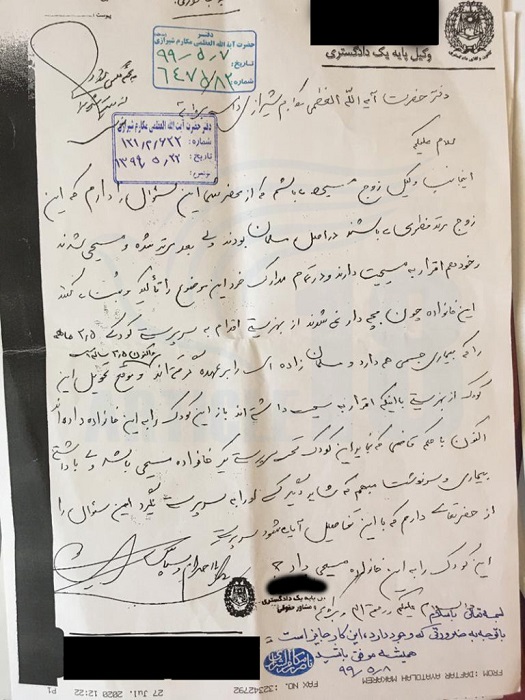 وکیل پایه یک دادگستری
دفتر
حضرت آیة الله العظمی مکارم شیرازی
تاریخ: ۹۹/۵/۷
شماره: ۶۴۷۵/۸۲
دفتر حضرت آیت الله العظمی مکارم شیرازی
شماره: ۱۲۱/۲/۶۲۲
تاریخ: ۱۳۹۹/۵/۲۲
دفتر حضرت آیه الله العظمی مکارم شیرازی
سلام علیکم
اینجانب وکیل زوج مسیحی می باشم که از محضر شما این سئوال را دارم که این
زوج مرتد فطری می باشند در اصل مسلمان بودند ولی بعد مرتد شده و مسیحی شدند
و خود هم اقرار به مسیحیت دارند و در تمام مدارک خود این موضوع را تأکید و می کنند
این خانواده چون بچه دار نمی شوند از بهزیستی اقدام به سرپرستی کودکی ۳٫۵ ماهه
را که بیماری جسمی هم دارد و مسلمان زاده ای را بر عهده گرفته اند و موقع تحویل این
کودک از بهزیستی با اینکه اقرار به مسیحیت داشته اند باز این کودک را به این خانواده داده اند
اکنون با حکم قاضی که نباید این کودک تحت سرپرستی یک خانواده مسیحی باشد ولی با داشتن
بیماری و سرنوشت مبهم که شاید دیگر کسی او را به سرپرستی نگیرد این سئوال را
از حضرتعالی دارم که با این تفاصیل آیا می شود سرپرستی
این کودک را به این خانواده مسیحی داد؟
با احترام و سپاس
وکیل پایه یک دادگستری
و مشاور حقوقی
علیکم و رحمة الله و برکاته
با توجه به ضرورتی که وجود دارد، این کار جایز است
همیشه موفق باشید
۹۹/۵/۸
FROM: DAFTAR AYATOLAH MAKAREM
FAX NO.: 32342792
27 Jul. 2020 12:22
P1